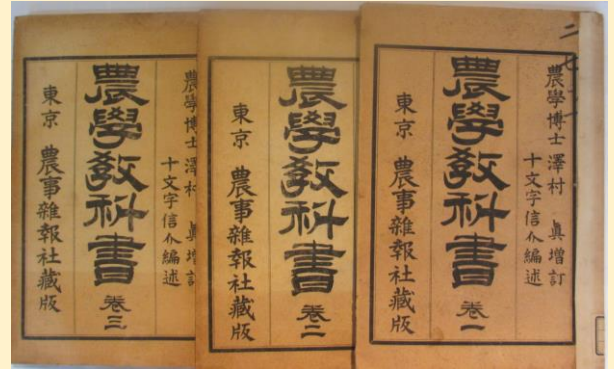 農學博士 澤村 眞增訂
十文字信介編述
農學敎科書 卷一
東京 農事雜報社藏版
農學博士
十文字信介編述
農學敎科書 卷二
東京 農事雜報社藏版
農學博士 澤村
十文字信介編述
農學敎科書 卷三
東京 農事雜報社藏版